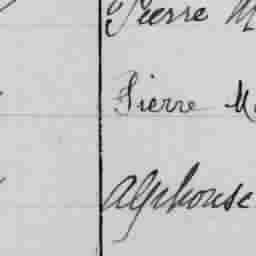 Pierre M
Pierre M
Alphonse